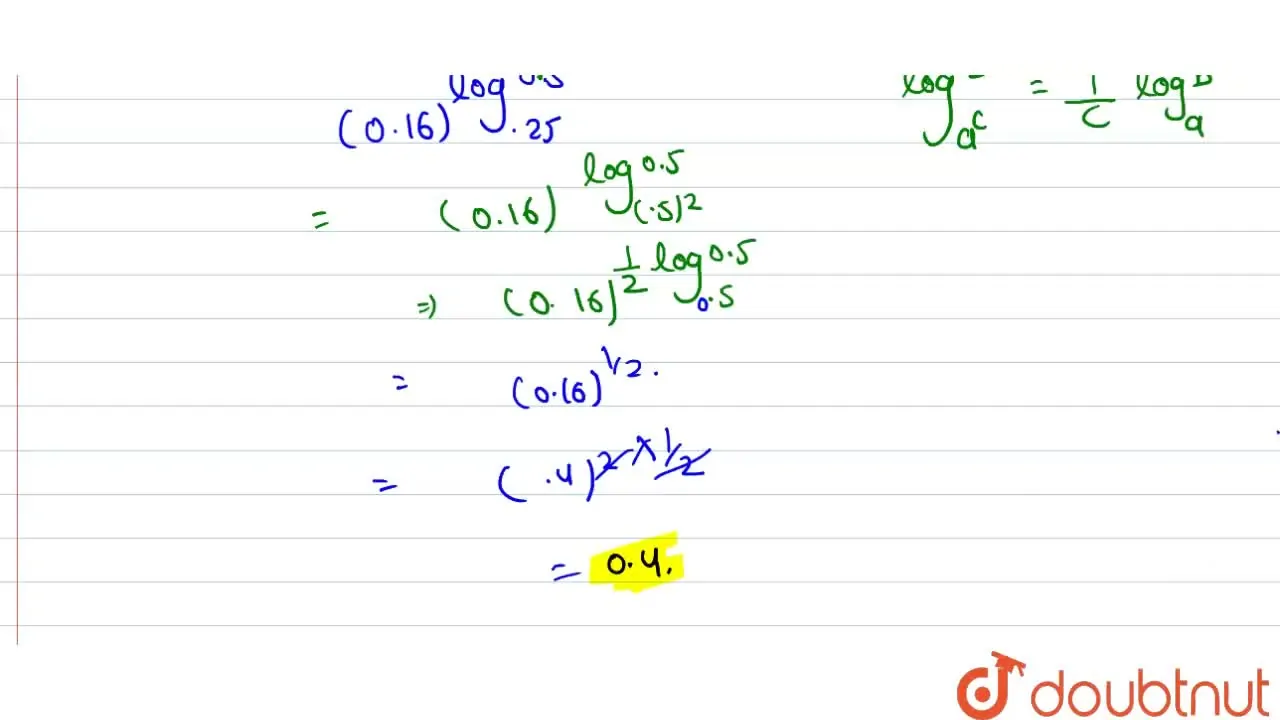 (0.16)^log_.25 0.5
log_a^c = 1/c log_a b
= (0.16)^log_(.5)^2 0.5
⇒ (0.16)^1/2 log_0.5 0.5
= (0.16)^1/2.
= (.4)^2×1/2
= 0.4.
doubtnut